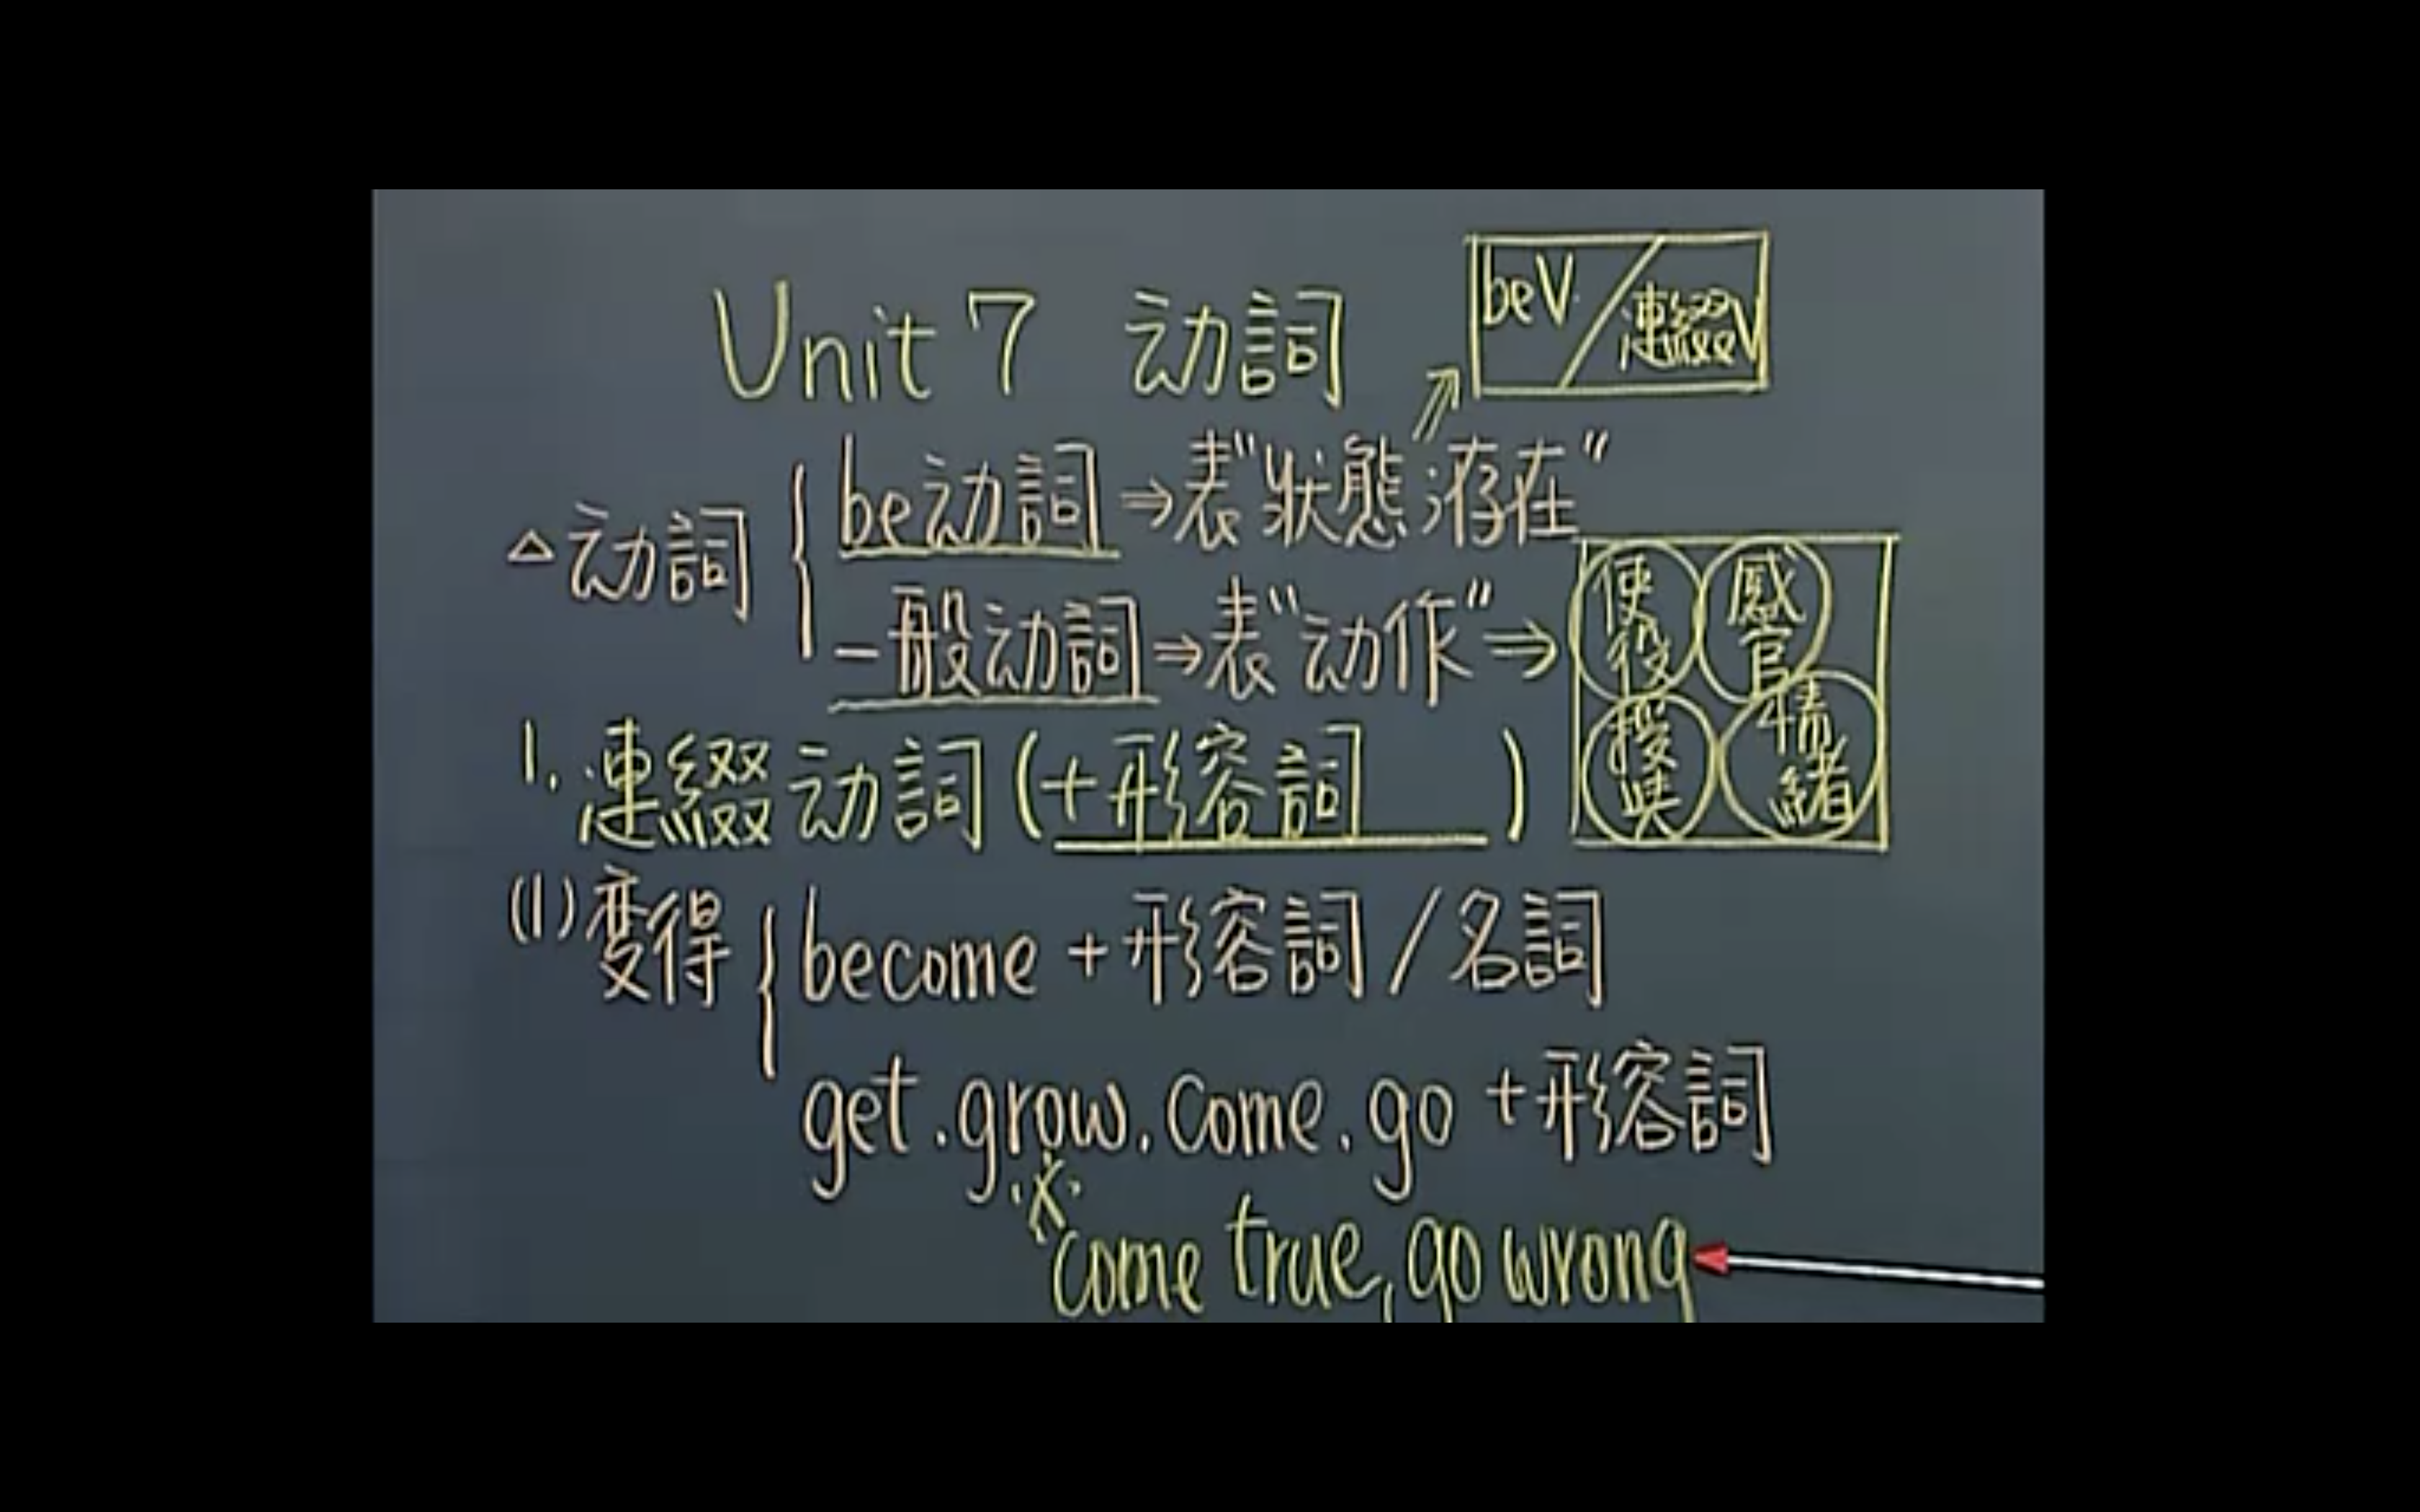 Unit 7 动詞
beV / 連綴V
△动詞 { be动詞 ⇒ 表"狀態存在"
一般动詞 ⇒ 表"动作" ⇒
使役 感官
授與 情緒
1. 連綴动詞 (+形容詞 )
(1) 变得 { become + 形容詞 / 名詞
get . grow . come . go + 形容詞
※ come true, go wrong